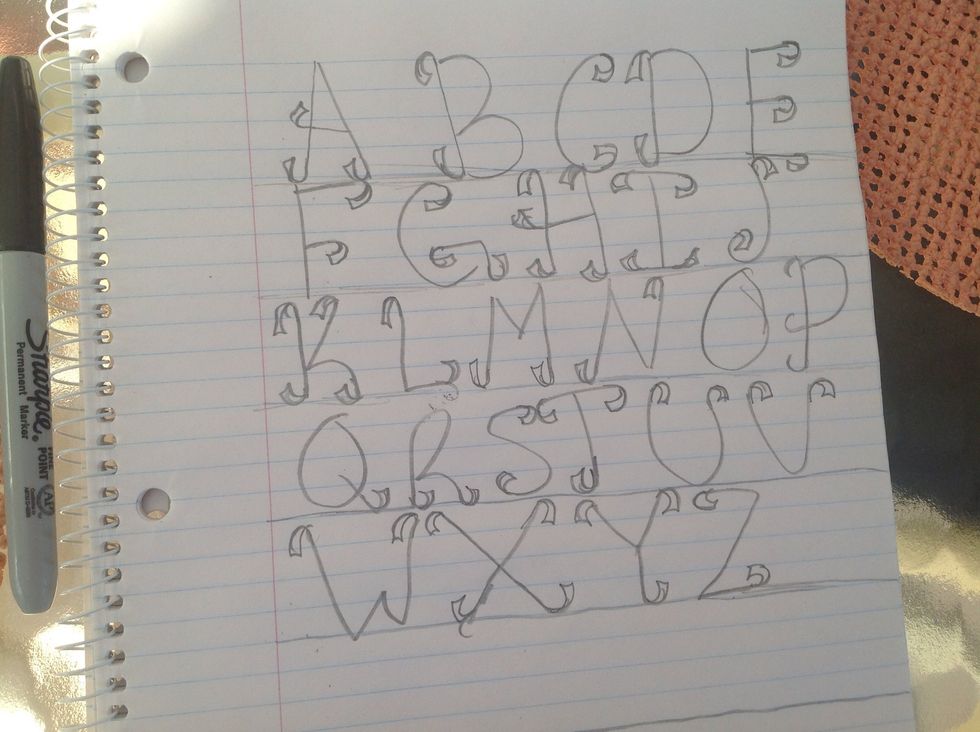 A B C D E
F G H I J
K L M N O P
Q R S T U V
W X Y Z
Sharpie.
Permanent Marker
FINE POINT
AP